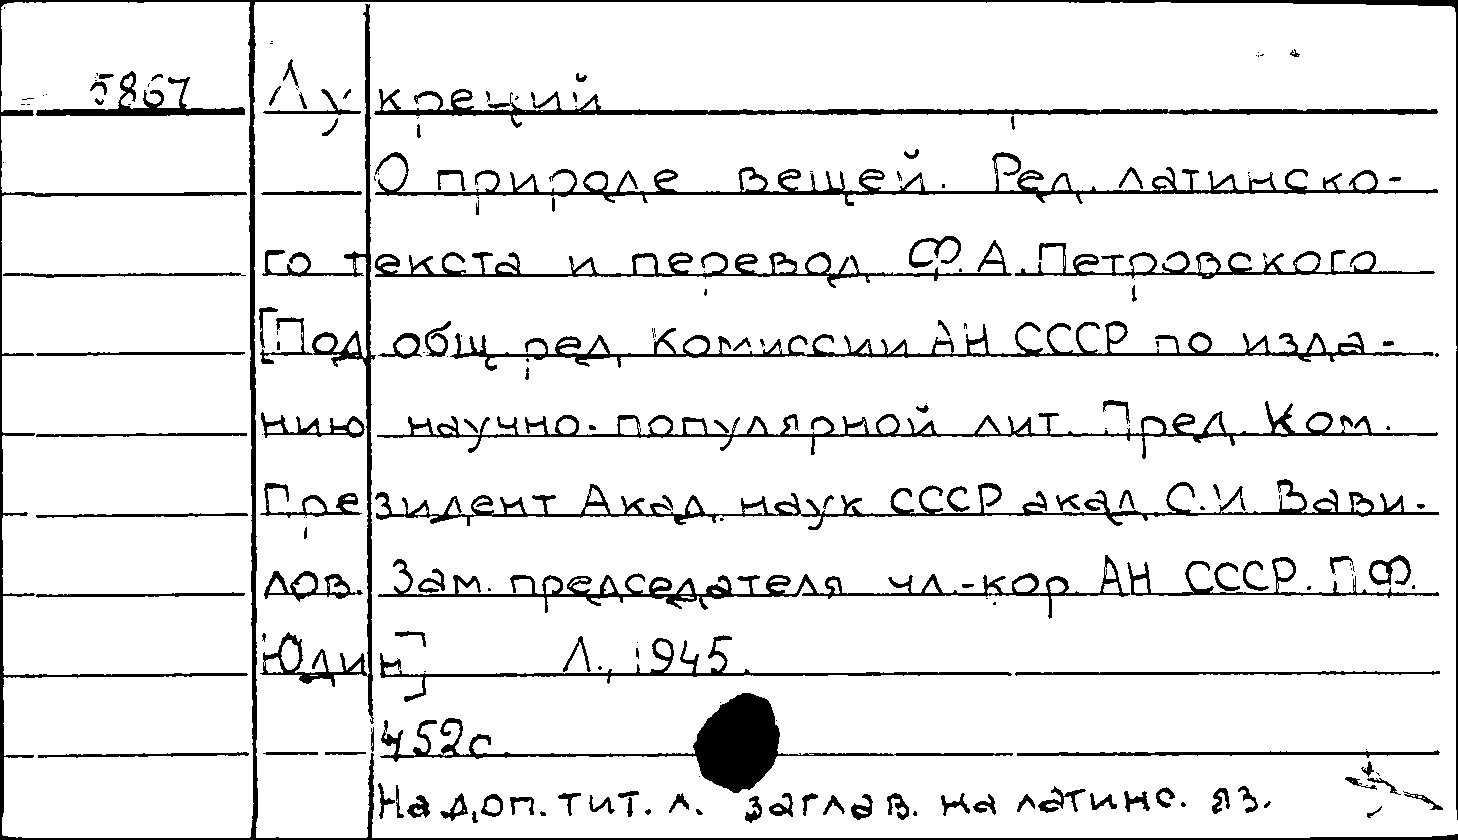 5867 Лукреций
О природе вещей. Ред. латинско-
го текста и перевод Ф.А.Петровского
[Под общ. ред. Комиссии АН СССР по изда-
нию научно-популярной лит. Пред. Ком.
Президент Акад. наук СССР акад. С.И. Вави-
лов. Зам. председателя чл.-кор. АН СССР. П.Ф.
Юдин] Л., 1945.
452с.
На доп. тит. л. заглав. на латинс. яз.